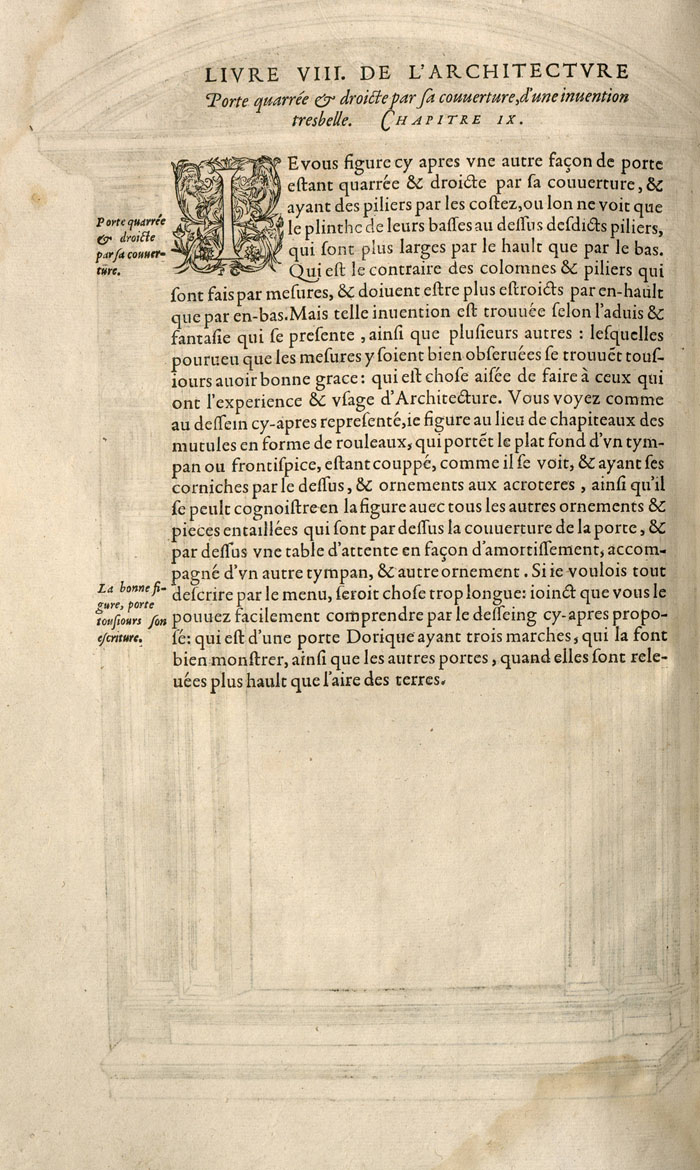 LIVRE VIII. DE L'ARCHITECTVRE
Porte quarrée & droicte par sa couuerture, d'une inuention
tresbelle. CHAPITRE IX.
Porte quarrée
& droicte
par sa couuer-
ture.
IE vous figure cy apres vne autre façon de porte
estant quarrée & droicte par sa couuerture, &
ayant des piliers par les costez, ou lon ne voit que
le plinthe de leurs basses au dessus desdicts piliers,
qui sont plus larges par le hault que par le bas.
Qui est le contraire des colomnes & piliers qui
sont fais par mesures, & doiuent estre plus estroicts par en-hault
que par en-bas. Mais telle inuention est trouuée selon l'aduis &
fantasie qui se presente, ainsi que plusieurs autres : lesquelles
pourueu que les mesures y soient bien obseruées se trouuēt tous-
iours auoir bonne grace: qui est chose aisée de faire à ceux qui
ont l'experience & vsage d'Architecture. Vous voyez comme
au dessein cy-apres representé, ie figure au lieu de chapiteaux des
mutules en forme de rouleaux, qui portēt le plat fond d'vn tym-
pan ou frontispice, estant couppé, comme il se voit, & ayant ses
corniches par le dessus, & ornements aux acroteres, ainsi qu'il
se peult cognoistre en la figure auec tous les autres ornements &
pieces entaillées qui sont par dessus la couuerture de la porte, &
par dessus vne table d'attente en façon d'amortissement, accom-
pagné d'vn autre tympan, & autre ornement. Si ie voulois tout
descrire par le menu, seroit chose trop longue: ioinct que vous le
pouuez facilement comprendre par le desseing cy-apres propo-
sé: qui est d'une porte Dorique ayant trois marches, qui la font
bien monstrer, ainsi que les autres portes, quand elles sont rele-
uées plus hault que l'aire des terres.
La bonne fi-
gure, porte
tousiours son
escriture.